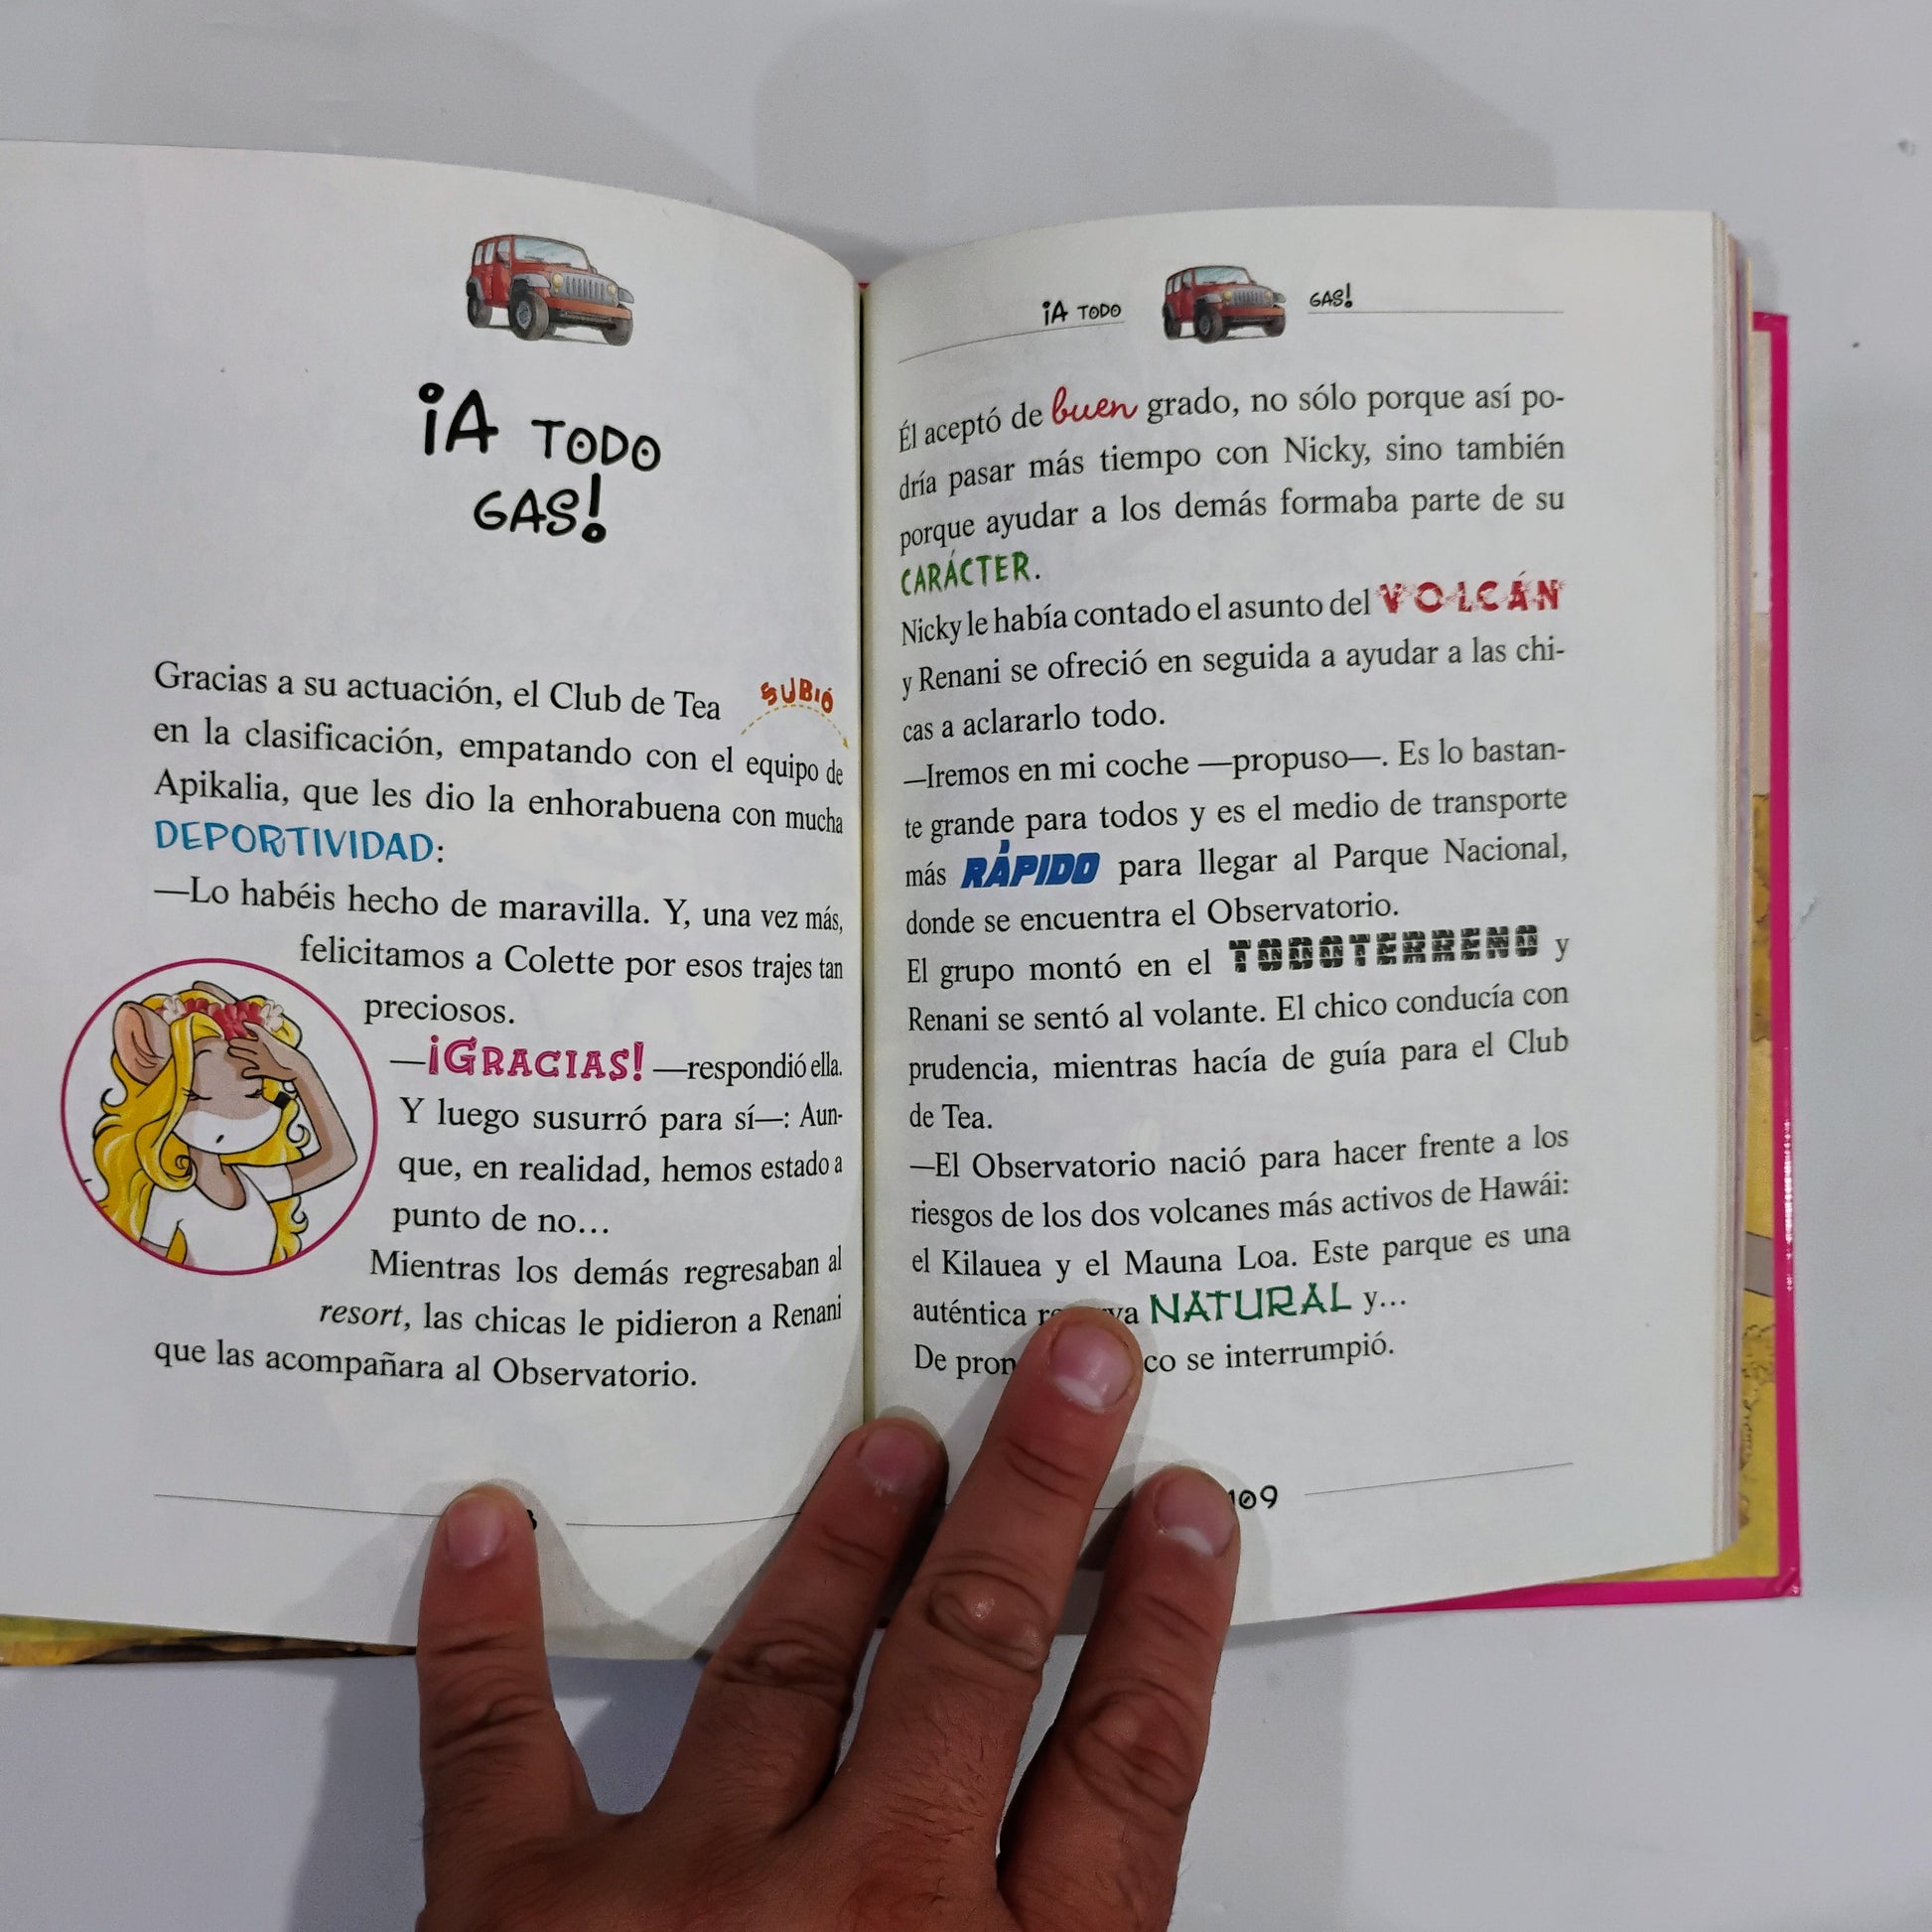 ¡A TODO
GAS!
Gracias a su actuación, el Club de Tea SUBIÓ
en la clasificación, empatando con el equipo de
Apikalia, que les dio la enhorabuena con mucha
DEPORTIVIDAD:
—Lo habéis hecho de maravilla. Y, una vez más,
felicitamos a Colette por esos trajes tan
preciosos.
—¡GRACIAS! —respondió ella.
Y luego susurró para sí—: Aun-
que, en realidad, hemos estado a
punto de no…
Mientras los demás regresaban al
resort, las chicas le pidieron a Renani
que las acompañara al Observatorio.
¡A TODO GAS!
Él aceptó de buen grado, no sólo porque así po-
dría pasar más tiempo con Nicky, sino también
porque ayudar a los demás formaba parte de su
CARÁCTER.
Nicky le había contado el asunto del VOLCÁN
y Renani se ofreció en seguida a ayudar a las chi-
cas a aclararlo todo.
—Iremos en mi coche —propuso—. Es lo bastan-
te grande para todos y es el medio de transporte
más RÁPIDO para llegar al Parque Nacional,
donde se encuentra el Observatorio.
El grupo montó en el TODOTERRENO y
Renani se sentó al volante. El chico conducía con
prudencia, mientras hacía de guía para el Club
de Tea.
—El Observatorio nació para hacer frente a los
riesgos de los dos volcanes más activos de Hawái:
el Kilauea y el Mauna Loa. Este parque es una
auténtica NATURAL y…
De se interrumpió.
109